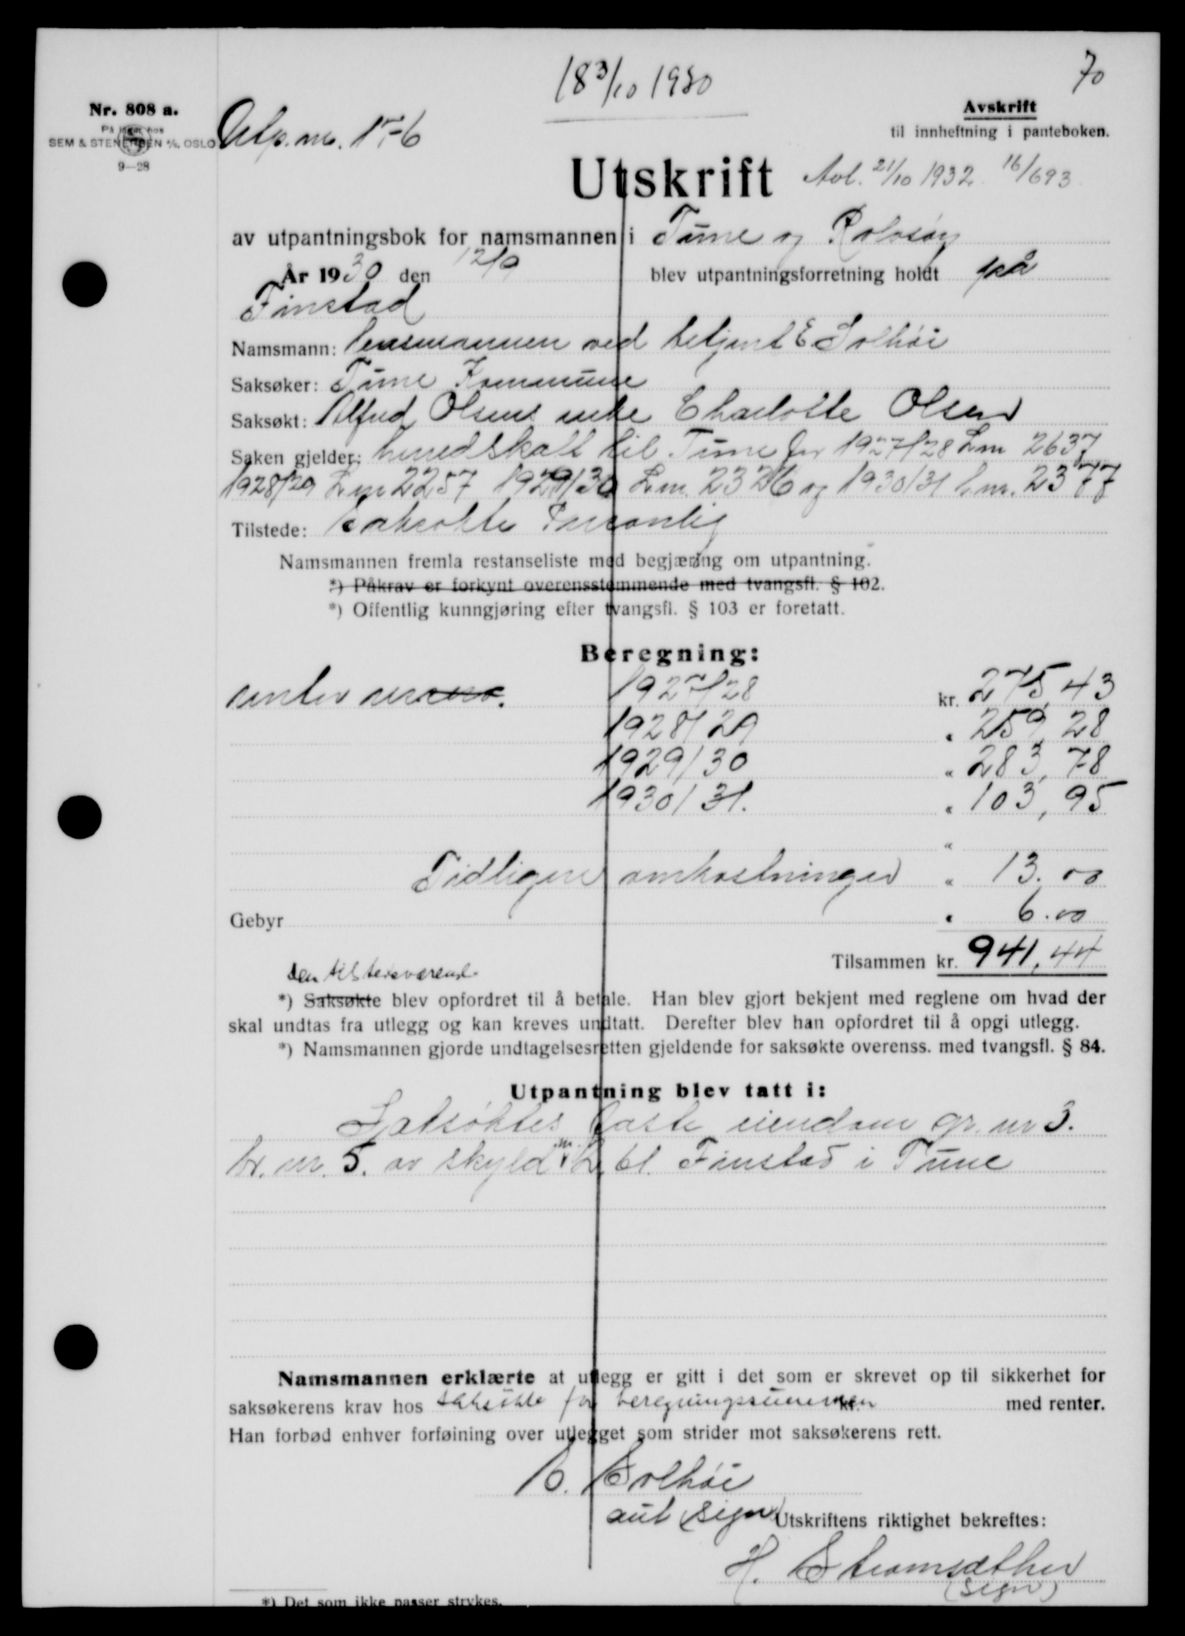 70
18 3/10 1930
Nr. 808 a.
På lager hos
SEM & STENERSEN A/S, OSLO
9—28
Avskrift
til innheftning i panteboken.
Utskrift
Avl. 21/10 1932 16/693
av utpantningsbok for namsmannen i Tune og Rolvsøy
År 1930 den 12/9 blev utpantningsforretning holdt på
Finstad
Namsmann: lensmannen ved betjent E. Solhøi
Saksøker: Tune Kommune
Saksøkt: Alfred Olsens enke Charlotte Olsen
Saken gjelder: herredskatt til Tune for 1927/28 Lnr. 2637
1928/29 Lnr 2257 1929/30 Lnr. 2326 og 1930/31 Lnr. 2377
Tilstede: Saksøkte Personlig
Namsmannen fremla restanseliste med begjæring om utpantning.
*) Påkrav er forkynt overensstemmende med tvangsfl. § 102.
*) Offentlig kunngjøring efter tvangsfl. § 103 er foretatt.
Beregning:
1927/28 kr. 275,43
1928/29 " 259,28
1929/30 " 283,78
1930/31. " 103,95
"
Tidligere omkostninger " 13.00
Gebyr " 6.00
Tilsammen kr. 941,44
den tilstedeværende
*) Saksøkte blev opfordret til å betale. Han blev gjort bekjent med reglene om hvad der
skal undtas fra utlegg og kan kreves undtatt. Derefter blev han opfordret til å opgi utlegg.
*) Namsmannen gjorde undtagelsesretten gjeldende for saksøkte overenss. med tvangsfl. § 84.
Utpantning blev tatt i:
Saksøktes faste eiendom gr. nr 3.
br. nr. 5. av skyld bl. Finstad i Tune
Namsmannen erklærte at utlegg er gitt i det som er skrevet op til sikkerhet for
saksøkerens krav hos saksøkte for beregningssummen kr. med renter.
Han forbød enhver forføining over utlegget som strider mot saksøkerens rett.
E. Solhøi
aut (sign)
Utskriftens riktighet bekreftes:
H. Stromsæther
(sign)
*) Det som ikke passer strykes.